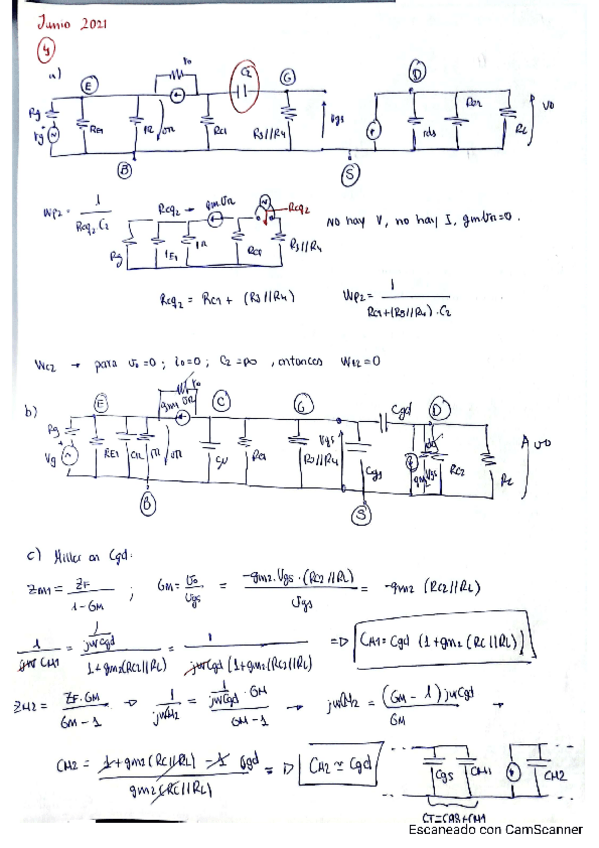 Junio 2021
4
a)
E
ro
C2
G
D
Rg
Vg
RE1
rπ
vπ
RC1
R3//R4
Vgs
rds
RC2
RL
vo
B
S
Wp2 = 1 / Req2 C2
Req2 →
gm vπ
Req2
Rg
RC1
R3//R4
No hay V, no hay I, gm vπ=0.
Req2 = RC1 + (R3//R4)
Wp2 = 1 / RC1+(R3//R4)·C2
Wc2 → para vo=0; io=0; C2=∞, entonces Wz2=0
b)
E
ro
gm vπ
C
G
Cgd
D
Rg
Vg
RE1
Cπ
rπ
vπ
Cμ
RC1
R3//R4
Vgs
Cgs
gm Vgs
RC2
RL
vo
B
S
c) Miller en Cgd:
ZM1 = ZF / 1-GM ; GM = vo / Vgs = -gm2·Vgs·(RC2//RL) / Vgs = -gm2 (RC2//RL)
1 / jw CM1 = 1/jwCgd / 1+gm2(RC2//RL) = 1 / jwCgd (1+gm2(RC2//RL)) => CM1 = Cgd (1+gm2 (RC//RL))
ZM2 = ZF·GM / GM-1 → 1 / jwCM2 = 1/jwCgd · GM / GM-1 → jwCM2 = (GM-1) jwCgd / GM →
CM2 = 1+gm2(RC//RL) -1 Cgd / gm2(RC//RL) => CM2 ≃ Cgd
Cgs
CM1
CM2
CT=Cgs+CM1
Escaneado con CamScanner